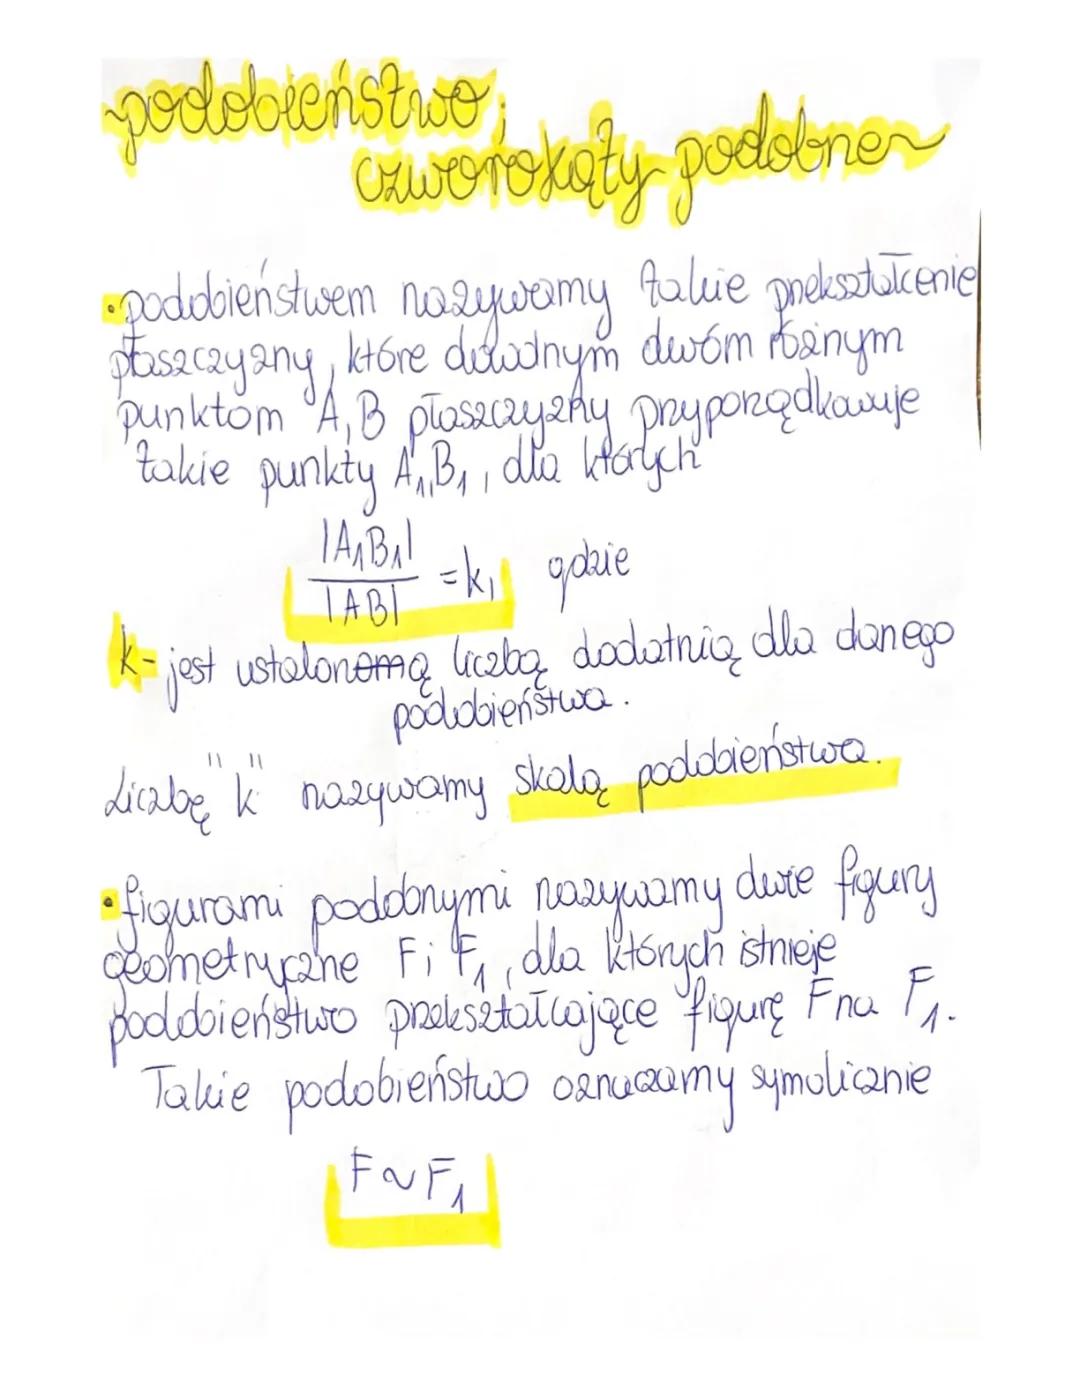 ~podobieństwo,
czworokąty podobne~
•podobieństwem nazywamy takie przekształcenie
płaszczyzny, które dowolnym dwóm różnym
punktom A, B płaszczyzny przyporządkowuje
takie punkty A₁, B₁, dla których
|A₁B₁|
/|AB| = k, gdzie
k- jest ustaloną liczbą dodatnią dla danego
podobieństwa.
Liczbę "k" nazywamy skalą podobieństwa.
•figurami podobnymi nazywamy dwie figury
geometryczne F i F₁, dla których istnieje
podobieństwo przekształcające figurę F na F₁.
Takie podobieństwo oznaczamy symolicznie
F~F₁